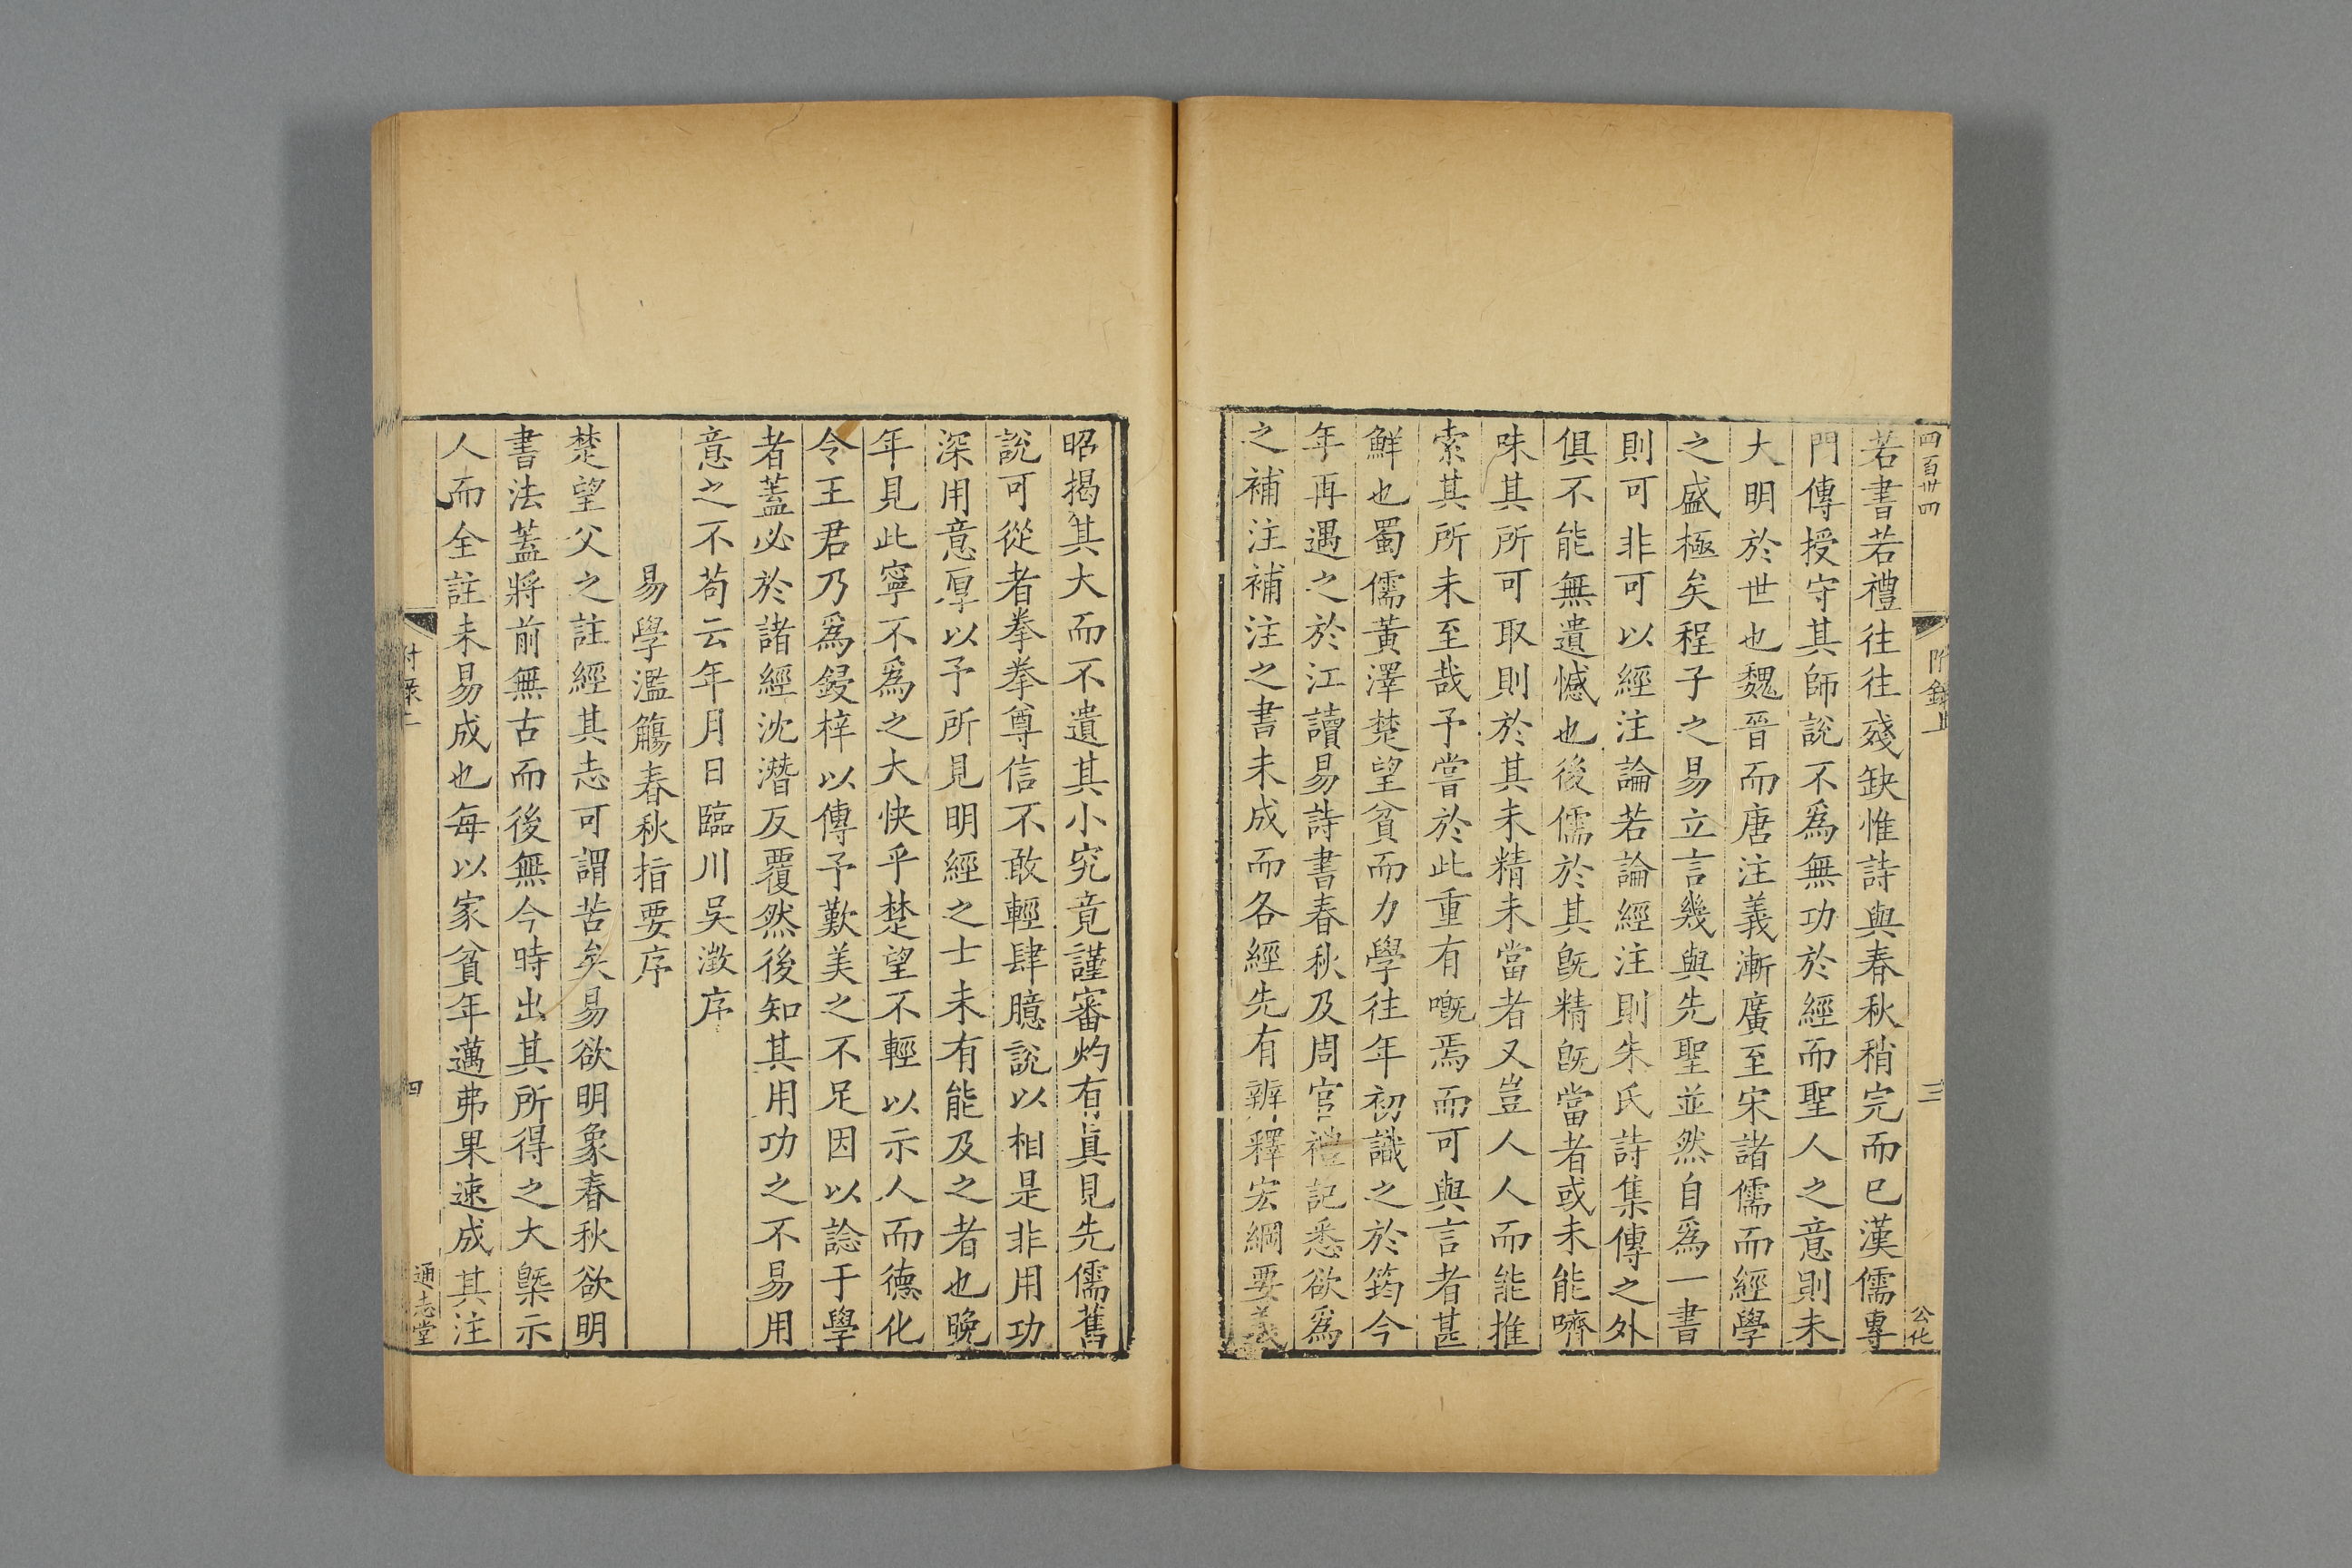 四百卅四
附録上
三
公化
若書若禮往往殘缺惟詩與春秋稍完而已漢儒專
門傳授守其師說不爲無功於經而聖人之意則未
大明於世也魏晉而唐注義漸廣至宋諸儒而經學
之盛極矣程子之易立言幾與先聖並然自爲一書
則可非可以經注論若論經注則朱氏詩集傳之外
俱不能無遺憾也後儒於其旣精旣當者或未能嚌
味其所可取則於其未精未當者又豈人人而能推
索其所未至哉予嘗於此重有嘅焉而可與言者甚
鮮也蜀儒黃澤楚望貧而力學往年初識之於筠今
年再遇之於江讀易詩書春秋及周官禮記悉欲爲
之補注補注之書未成而各經先有辨釋宏綱要義
昭揭其大而不遺其小究竟謹審灼有眞見先儒舊
說可從者拳拳尊信不敢輕肆臆說以相是非用功
深用意厚以予所見明經之士未有能及之者也晚
年見此寧不爲之大快乎楚望不輕以示人而德化
令王君乃爲鋟梓以傳予歎美之不足因以諗于學
者蓋必於諸經沈潛反覆然後知其用功之不易用
意之不苟云年月日臨川吳澂序
易學濫觴春秋指要序
楚望父之註經其志可謂苦矣易欲明象春秋欲明
書法蓋將前無古而後無今時出其所得之大槩示
人而全註未易成也每以家貧年邁弗果速成其注
四
通志堂